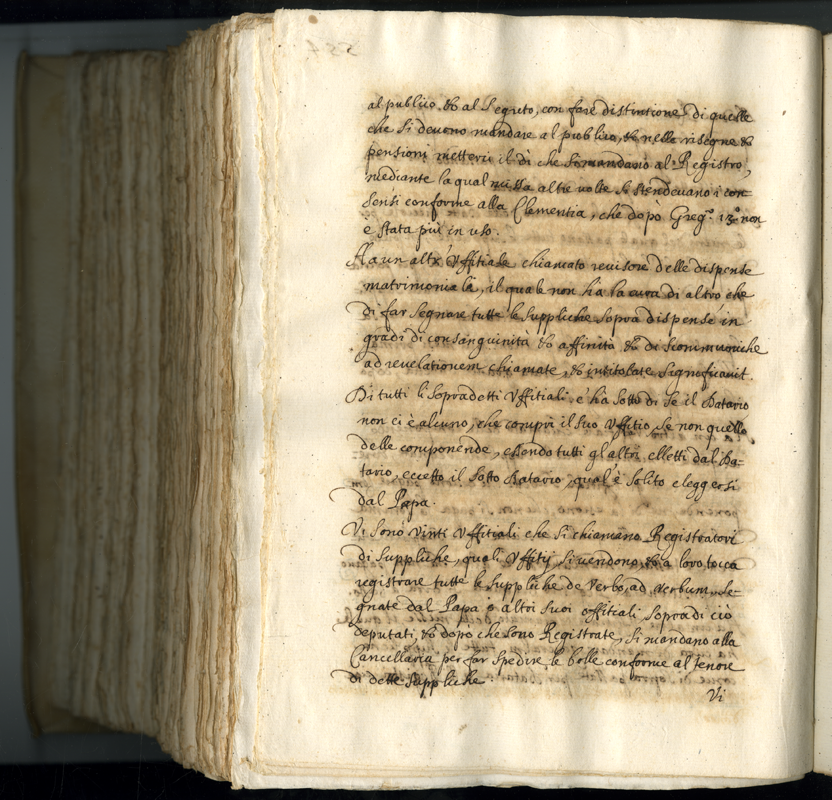 al publico, & al Segreto, con fare distintione di quelle
che si deuono mandare al publico, & nelle risegne &
pensioni metterui il dì che si mandano al Registro,
mediante la qual missa altre volte si stendeuano i con=
sensi conforme alla Clementia, che dopò Greg.º 13.º non
è stata più in uso.
Ha un altr' Uffitiale chiamato reuisore delle dispense
matrimoniali, il quale non hà la cura di altro, che
di far segnare tutte le suppliche sopra dispense in
gradi di consanguinità & affinità & di scommuniche
ad reuelationem chiamate, & intitolate significauit.
Di tutti li sopradetti Uffitiali, c'ha sotto di se il Datario
non ci è alcuno, che compri il suo Uffitio, se non quello
delle componende, essendo tutti gl'altri elletti dal Da=
tario, eccetto il Sotto Datario, qual'è solito eleggersi
dal Papa.
Vi sono vinti Uffitiali che si chiamano Registratori
di suppliche, quali Uffitij si uendono, & a loro tocca
registrare tutte le suppliche de verbo, ad verbum, se=
gnate dal Papa ò altri suoi offitiali sopra di ciò
deputati, & dopò che sono Registrate, si mandano alla
Cancellaria per far spedire le bolle conforme al tenore
di dette suppliche.
Vi